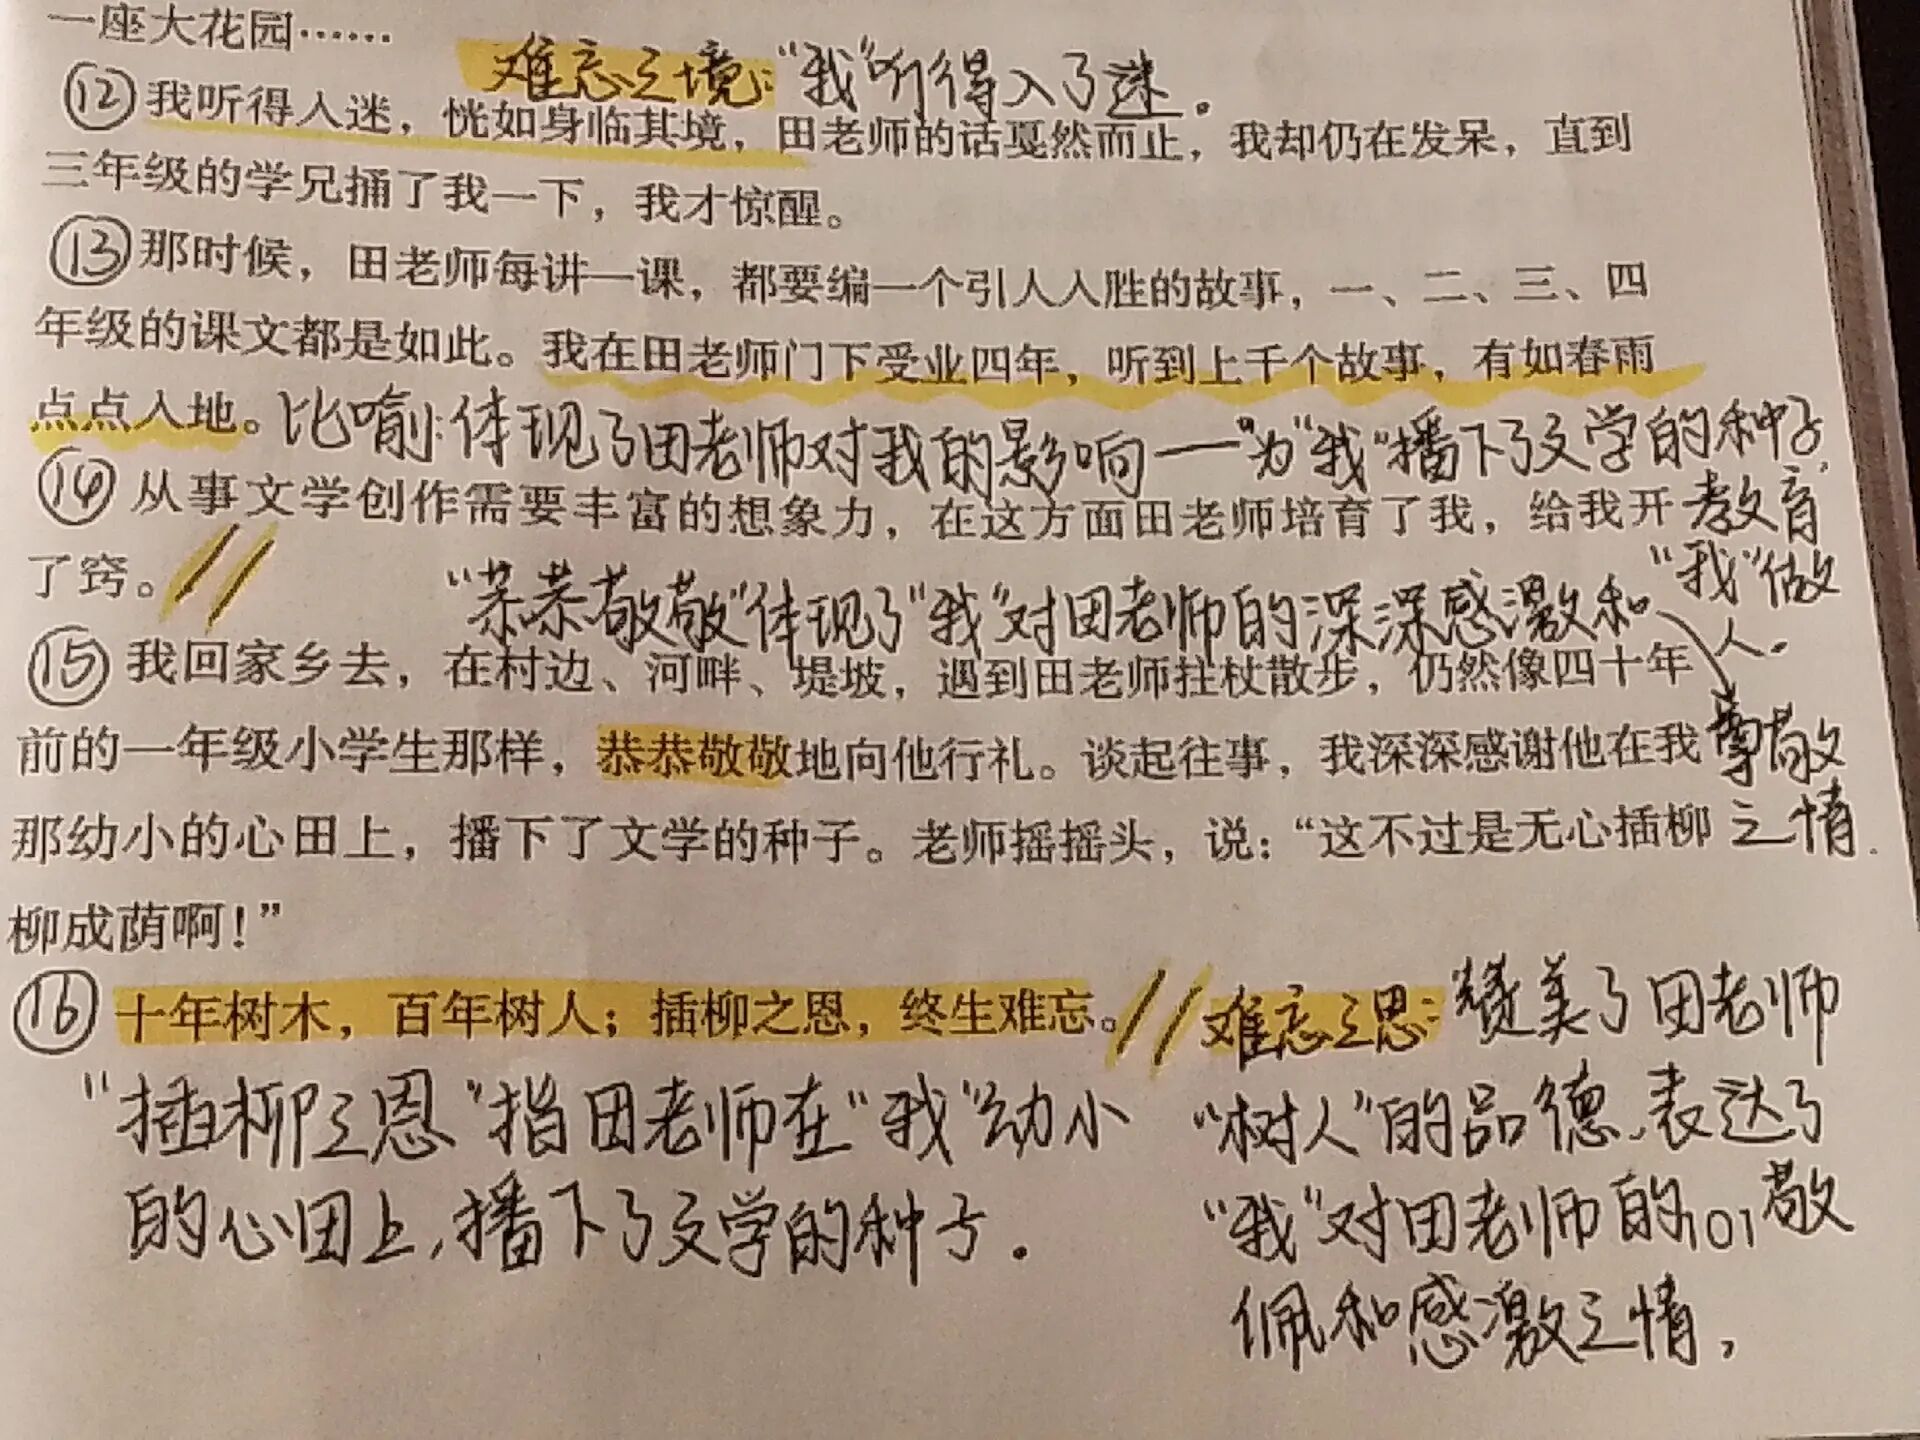 一座大花园……
难忘之境：“我”听得入了迷。
⑫我听得入迷，恍如身临其境，田老师的话戛然而止，我却仍在发呆，直到
三年级的学兄捅了我一下，我才惊醒。
⑬那时候，田老师每讲一课，都要编一个引人入胜的故事，一、二、三、四
年级的课文都是如此。我在田老师门下受业四年，听到上千个故事，有如春雨
点点入地。
比喻：体现了田老师对我的影响——为“我”播下了文学的种子，
教育
“我”做
人。
⑭从事文学创作需要丰富的想象力，在这方面田老师培育了我，给我开
了窍。
“恭恭敬敬”体现了“我”对田老师的深深感激和
尊敬
之情.
⑮我回家乡去，在村边、河畔、堤坡，遇到田老师拄杖散步，仍然像四十年
前的一年级小学生那样，恭恭敬敬地向他行礼。谈起往事，我深深感谢他在我
那幼小的心田上，播下了文学的种子。老师摇摇头，说：“这不过是无心插柳
柳成荫啊！”
⑯十年树木，百年树人；插柳之恩，终生难忘。
“插柳之恩”指田老师在“我”幼小
的心田上，播下了文学的种子.
难忘之恩：赞美了田老师
“树人”的品德，表达了
“我”对田老师的101敬
佩和感激之情，